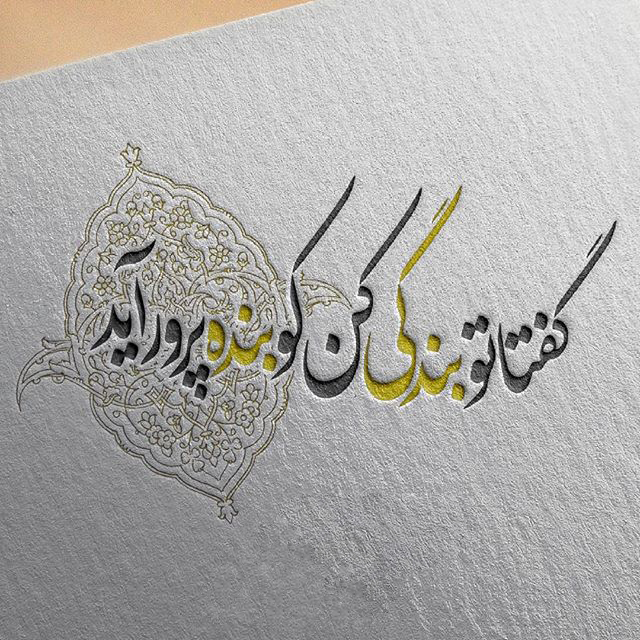 گفتا تو بندگی کن کو بنده پرور آید